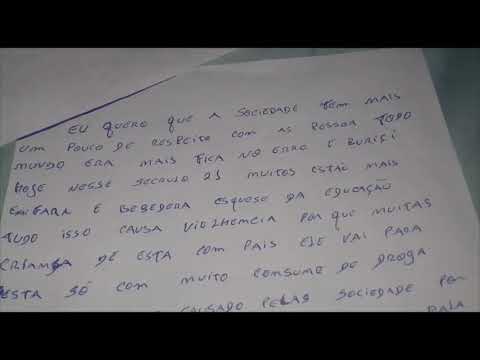 EU QUERO QUE A SOCIEDADE TEM MAIS
UM POUCO DE RESPEITO COM AS PESSOA TODO
MUNDO ERA MAIS FICA NO ERRO E BURIÇI
HOJE NESSE SECRULO 21 MUITOS ESTÃO MAIS
EM FARA E BEBEDERA ESQUESE DA EDUCAÇÃO
TUDO ISSO CAUSA VIOLHEMCIA POR QUE MUITAS
CRIANSA DE ESTA COM PAIS ELE VAI PARA
ESTA SÓ COM MUITO CONSUMO DE DROGA
CAUSADO PELAS SOCIEDADE POR
PARA